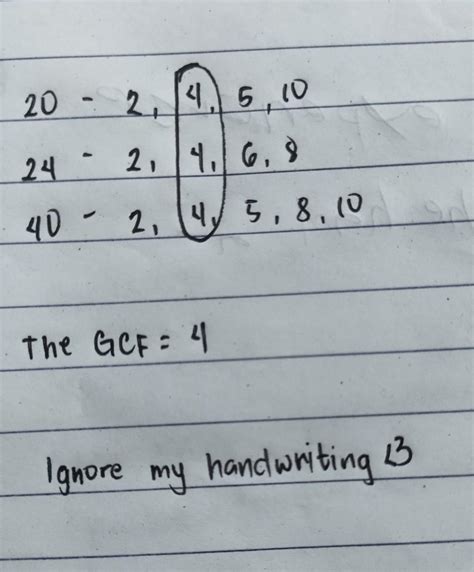 20 - 2, 4, 5, 10
24 - 2, 4, 6, 8
40 - 2, 4, 5, 8, 10
The GCF = 4
Ignore my handwriting <3